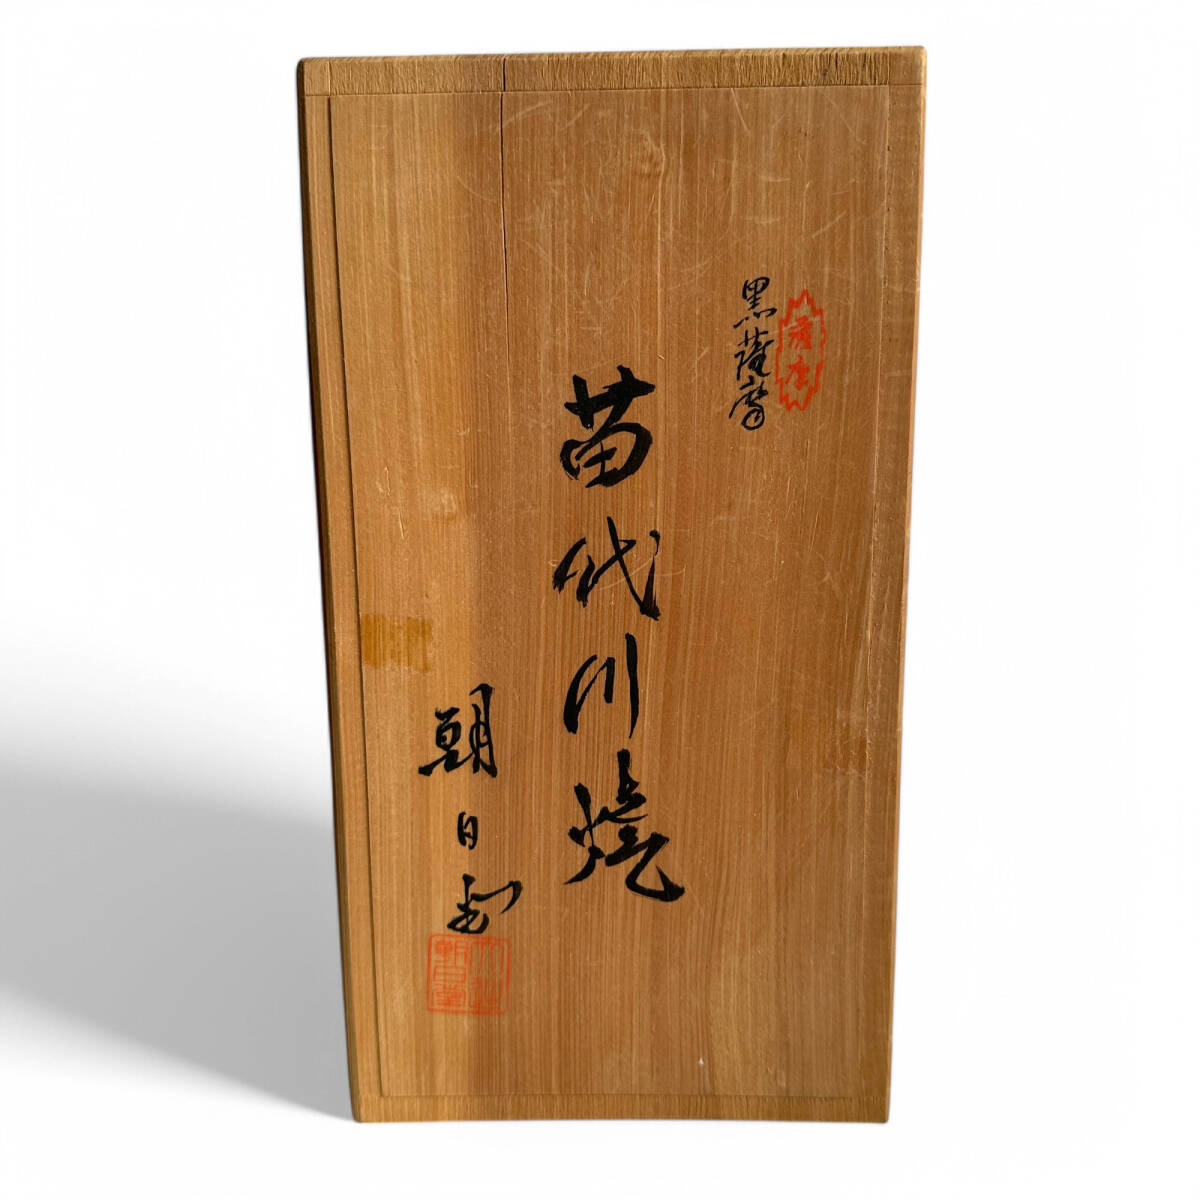 黒薩摩
苗代川焼
朝日